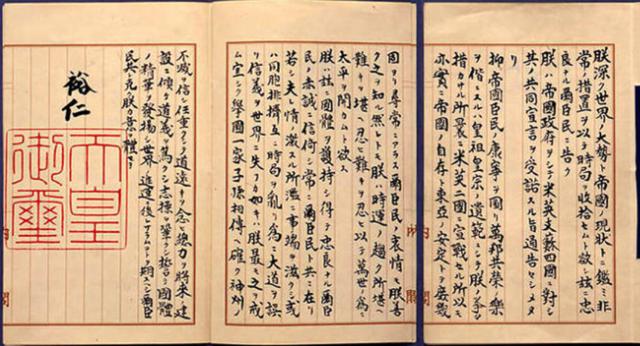 朕深ク世界ノ大勢ト帝國ノ現狀トニ鑑ミ非
常ノ措置ヲ以テ時局ヲ收拾セムト欲シ茲ニ忠
良ナル爾臣民ニ告ク
朕ハ帝國政府ヲシテ米英支蘇四國ニ對シ
其ノ共同宣言ヲ受諾スル旨通告セシメタ
リ
抑帝國臣民ノ康寧ヲ圖リ萬邦共榮ノ樂
ヲ偕ニスルハ皇祖皇宗ノ遺範ニシテ朕ノ拳々
措カサル所曩ニ米英二國ニ宣戰セル所以モ
亦實ニ帝國ノ自存ト東亞ノ安定トヲ庶幾
內閣
固ヨリ尋常ニアラス爾臣民ノ衷情モ朕善
ク之ヲ知ル然レトモ朕ハ時運ノ趨ク所堪ヘ
難キヲ堪ヘ忍ヒ難キヲ忍ヒ以テ萬世ノ爲ニ
太平ヲ開カムト欲ス
朕ハ茲ニ國體ヲ護持シ得テ忠良ナル爾臣
民ノ赤誠ニ信倚シ常ニ爾臣民ト共ニ在リ
若シ夫レ情ノ激スル所濫ニ事端ヲ滋クシ或
ハ同胞排擠互ニ時局ヲ亂リ爲ニ大道ヲ誤
リ信義ヲ世界ニ失フカ如キハ朕最モ之ヲ戒
ム宜シク擧國一家子孫相傳ヘ確ク神州ノ
不滅ヲ信シ任重クシテ道遠キヲ念ヒ總力ヲ將來ノ建
設ニ傾ケ道義ヲ篤クシ志操ヲ鞏クシ誓テ國體
ノ精華ヲ發揚シ世界ノ進運ニ後レサラムコトヲ期スヘシ爾臣
民其レ克ク朕カ意ヲ體セヨ
裕仁
天皇
御璽
內閣